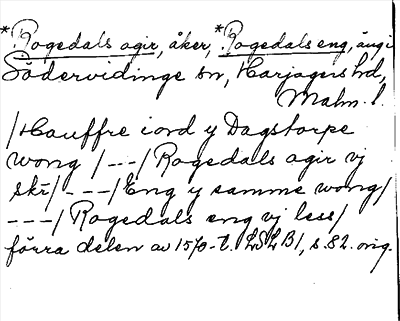 *Rogedals agir, åker, *Rogedals eng, äng i
Södervidinge sn, Harjagers hd,
Malm. l.
/Hauffre iord y Dagstorpe
wong /---/ Rogedals agir vj
skr/ - --/Eng y samme wong/
---/ Rogedals eng vj less/
förra delen av 1570-t. LSLB1, s. 82. orig.